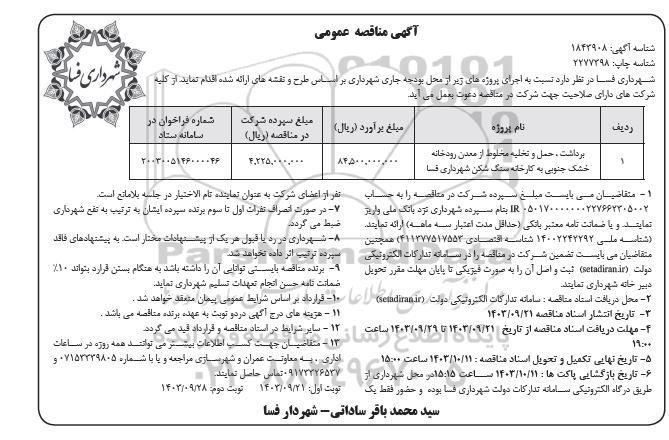 آگهی مناقصه عمومی
شهرداری فسا
شناسه آگهی: ۱۸۴۳۹۰۸
شناسه چاپ: ۲۲۷۷۳۹۸
شهرداری فسا در نظر دارد نسبت به اجرای پروژه های زیر از محل بودجه جاری شهرداری بر اساس طرح و نقشه های ارائه شده اقدام نماید. از کلیه
شرکت های دارای صلاحیت جهت شرکت در مناقصه دعوت بعمل می آید.
ردیف نام پروژه مبلغ برآورد (ریال) مبلغ سپرده شرکت در مناقصه (ریال) شماره فراخوان در سامانه ستاد
۱ برداشت ، حمل و تخلیه مخلوط از معدن رودخانه خشک جنوبی به کارخانه سنگ شکن شهرداری فسا ۸۴,۵۰۰,۰۰۰,۰۰۰ ۴,۲۲۵,۰۰۰,۰۰۰ ۲۰۰۳۰۰۵۱۴۶۰۰۰۰۴۶
۱ - متقاضیان می بایست مبلغ سپرده شرکت در مناقصه را به حساب
IR ۰۵۰۱۷۰۰۰۰۰۰۰۲۲۷۶۶۲۳۰۵۰۰۲ بنام سپرده شهرداری نزد بانک ملی واریز
نمایند و یا ضمانت نامه معتبر بانکی (حداقل مدت اعتبار سه ماهه) ارائه نمایند.
(شناسه ملی ۱۴۰۰۲۲۴۲۲۹۲ شناسه اقتصادی ۴۱۱۳۷۷۵۱۷۵۵۳) همچنین
متقاضیان می بایست تضمین شرکت در مناقصه را در سامانه تدارکات الکترونیکی
دولت (setadiran.ir) ثبت و اصل آن را به صورت فیزیکی تا پایان مهلت مقرر تحویل
دبیر خانه شهرداری نمایند.
۲- محل دریافت اسناد مناقصه : سامانه تدارکات الکترونیکی دولت (setadiran.ir)
۳- تاریخ انتشار اسناد مناقصه ۱۴۰۳/۰۹/۲۱
۴- مهلت دریافت اسناد مناقصه از تاریخ ۱۴۰۳/۰۹/۲۱ تا ۱۴۰۳/۰۹/۲۹ ساعت
۱۹:۰۰
۵- تاریخ نهایی تکمیل و تحویل اسناد مناقصه : ۱۴۰۳/۱۰/۱۱ ساعت ۱۵:۰۰
۶- تاریخ بازگشایی پاکت ها : ۱۴۰۳/۱۰/۱۱ ساعت ۱۵:۱۵در محل شهرداری از
طریق درگاه الکترونیکی سامانه تدارکات دولت شهرداری فسا بوده و حضور فقط یک
نفر از اعضای شرکت به عنوان نماینده تام الاختیار در جلسه بلامانع است.
۷- در صورت انصراف نفرات اول تا سوم برنده سپرده ایشان به ترتیب به نفع شهرداری
ضبط می گردد.
۸- شهرداری در رد یا قبول هر یک از پیشنهادات مختار است. به پیشنهادهای فاقد
سپرده ترتیب اثر داده نخواهد شد.
۹- برنده مناقصه بایستی توانایی آن را داشته باشد به هنگام بستن قرارد بتواند ۱۰٪
ضمانت نامه حسن انجام تعهدات تسلیم شهرداری نماید.
۱۰- قرارداد بر اساس شرایط عمومی پیمان منعقد خواهد شد .
۱۱ - هزینه های درج آگهی دردو نوبت به عهده برنده مناقصه می باشد .
۱۲ - سایر شرایط در اسناد مناقصه و قرارداد قید می گردد.
۱۳ - متقاضیان جهت کسب اطلاعات بیشتر می توانند همه روزه در ساعات
اداری ، به معاونت عمران و شهرسازی مراجعه و یا با شماره ۰۷۱۵۳۳۳۹۸۰۵ و
۰۹۱۷۳۳۲۶۵۳۷تماس حاصل نمایند.
نوبت اول: ۱۴۰۳/۰۹/۲۱ نوبت دوم: ۱۴۰۳/۰۹/۲۸
سید محمد باقر ساداتی- شهردار فسا